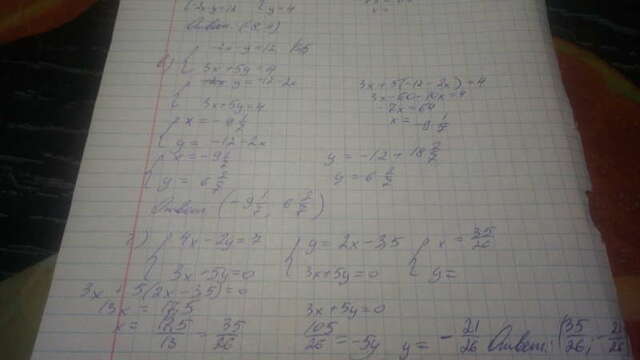 y = 4
Ответ: (-8; 4)
в) { -2x - y = 12
3x + 5y = 4
y = -12 - 2x
3x + 5y = 4
3x + 5(-12 - 2x) = 4
3x - 60 - 10x = 4
-7x = 64
x = -9 1/7
{ x = -9 1/7
y = -12 - 2x
{ x = -9 1/7
y = 6 2/7
y = -12 + 18 2/7
y = 6 2/7
Ответ: (-9 1/7; 6 2/7)
г) { 4x - 2y = 7
3x + 5y = 0
{ y = 2x - 3,5
3x + 5y = 0
{ x = 35/26
y =
3x + 5(2x - 3,5) = 0
13x = 17,5
x = 17,5/13 = 35/26
3x + 5y = 0
105/26 = -5y
y = -21/26
Ответ: (35/26; -21/26)